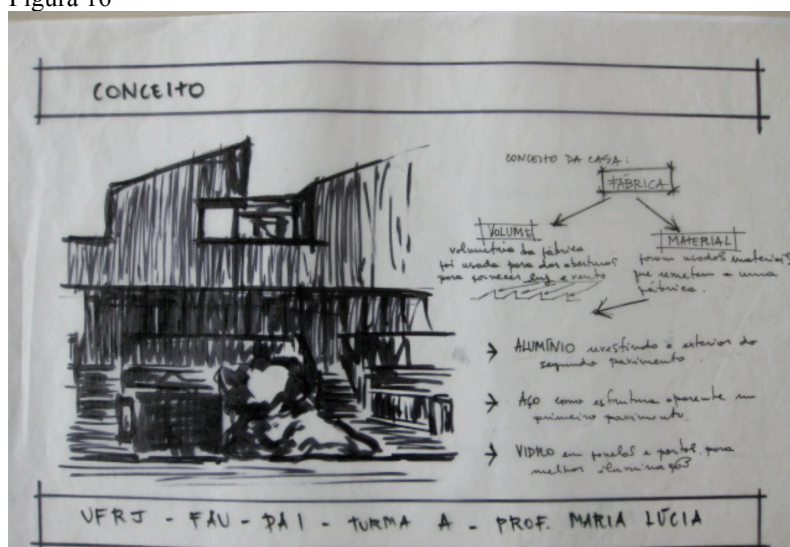 Figura 16
CONCEITO
CONCEITO DA CASA:
FÁBRICA
VOLUME
volumetria da fábrica
foi usada para dar aberturas
para fornecer luz e vento
MATERIAL
foram usados materiais
que remetem a uma
fábrica.
→ ALUMÍNIO revestindo o exterior do
segundo pavimento
→ AÇO como estrutura aparente no
primeiro pavimento.
→ VIDRO em janelas e portas para
melhor iluminação
UFRJ - FAU - PA I - TURMA A - PROF. MARIA LÚCIA